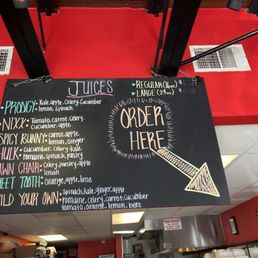 JUICES
REGULAR
LARGE
PRODIGY: Kale, apple, celery, cucumber
lemon, spinach
NIXX: Tomato, carrot, celery
cucumber, apple
SPICY BUNNY: carrot, apple
lemon, ginger
HULK: cucumber, celery, kale
romaine, spinach, parsley
LAWN CHAIR: Celery, parsley, apple
lemon
SWEET TOOTH: Orange, apple, lime
BUILD YOUR OWN: spinach, kale, ginger, apple
romaine, celery, carrot, cucumber
tomato, orange, lemon, beet
ORDER
HERE